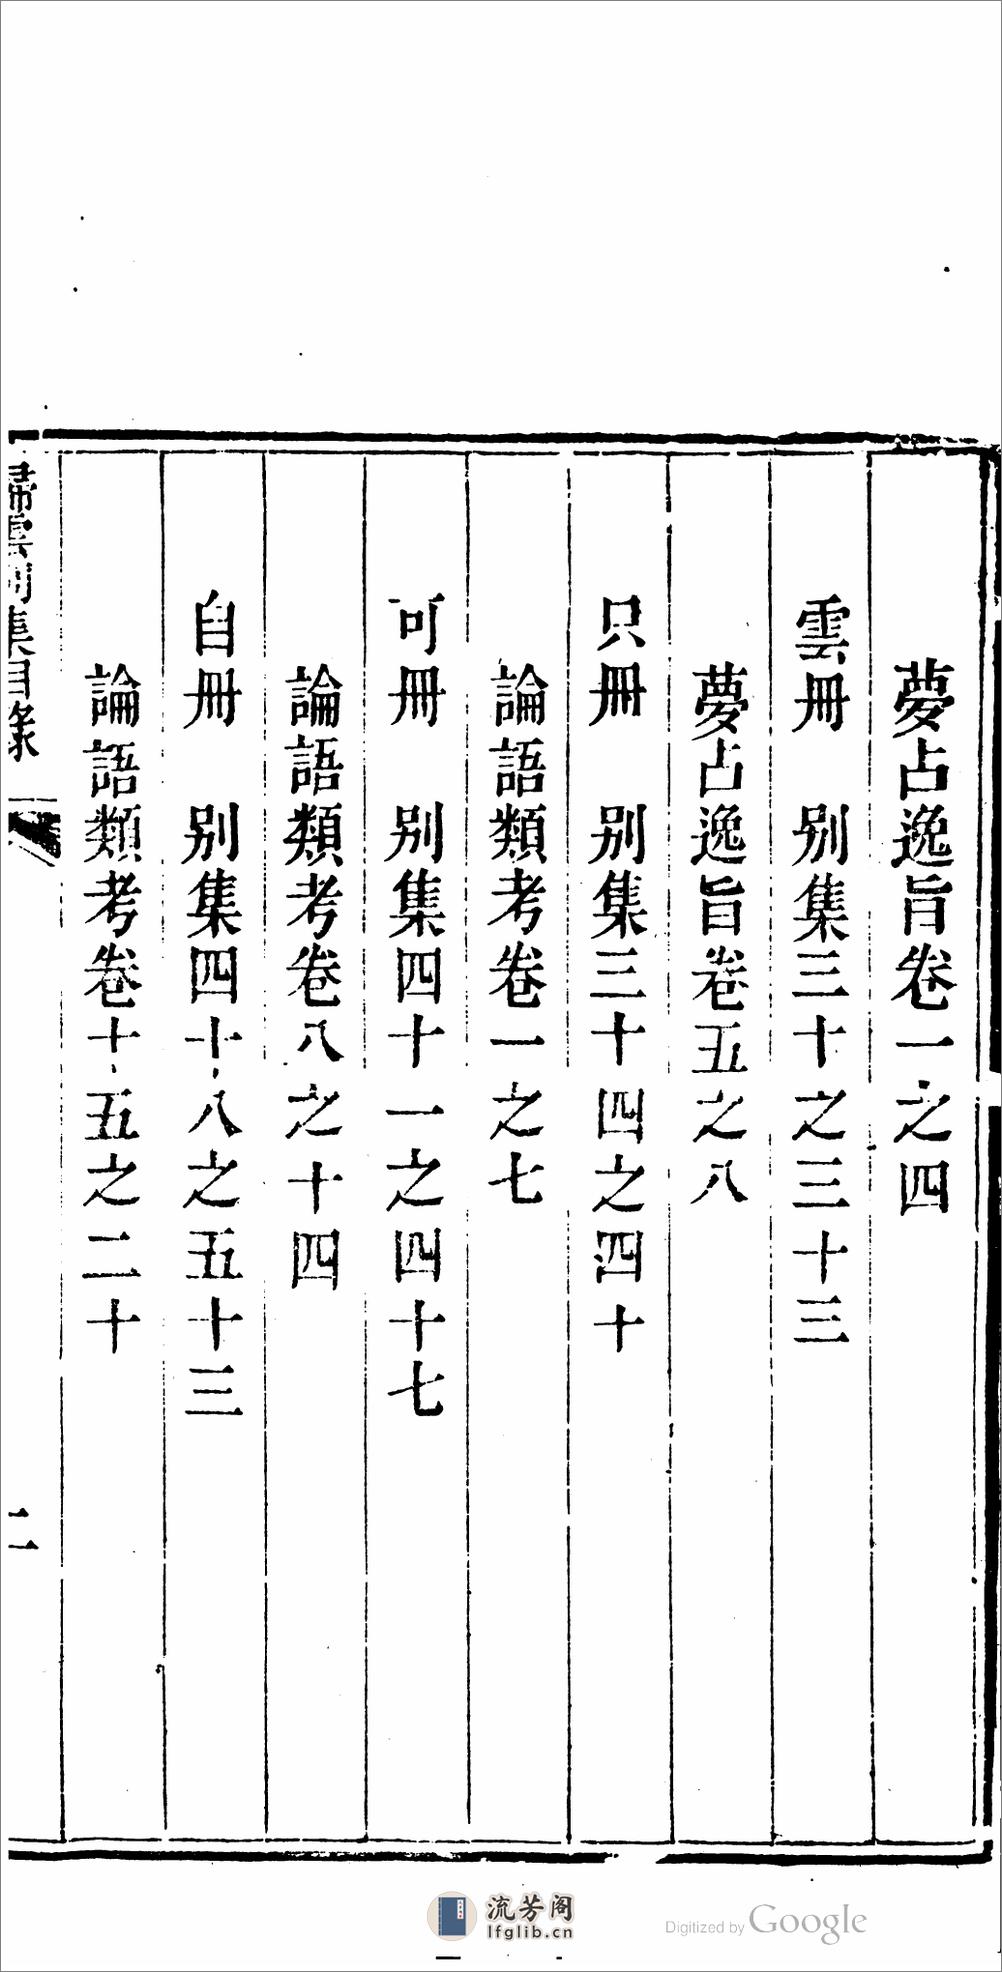 夢占逸旨卷一之四
雲冊　别集三十之三十三
夢占逸旨卷五之八
只冊　别集三十四之四十
論語類考卷一之七
可冊　别集四十一之四十七
論語類考卷八之十四
自冊　别集四十八之五十三
論語類考卷十五之二十
歸雲别集目錄
二
流芳阁
lfglib.cn
Digitized by Google